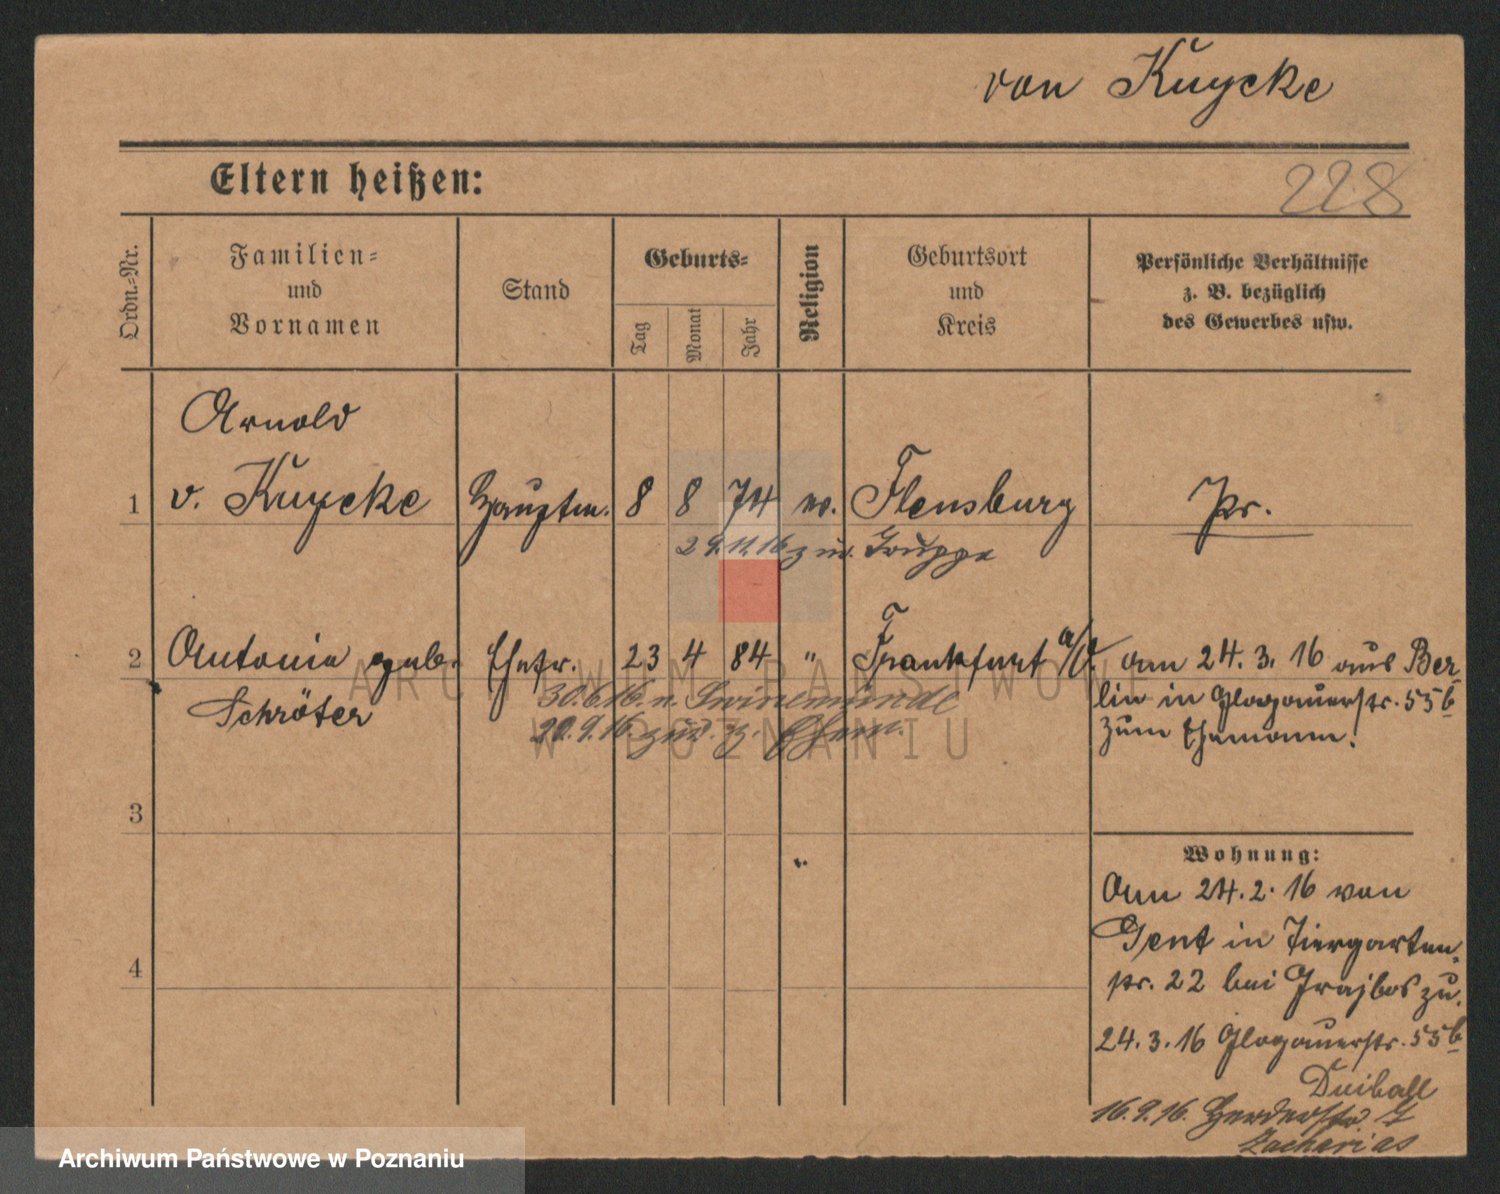 von Kuycke
Eltern heißen:
228
Ordn.-Nr.
Familien-
und
Vornamen
Stand
Geburts-
Tag
Monat
Jahr
Religion
Geburtsort
und
Kreis
Persönliche Verhältnisse
z. B. bezüglich
des Gewerbes usw.
Arnold
1 v. Kuycke Hauptm. 8 8 74 ev. Flensburg Pr.
29.11.16 zur Truppe
2 Antonie geb. Ehefr. 23 4 84 " Frankfurt a/O. am 24.3.16 aus Ber-
Schröter
30.6.16. n. Swinemünde
20.9.16. zur. z. Ehem.
lin in Glogauerstr. 55b
zum Ehemann.
3
4
Wohnung:
Am 24.2.16 von
Gent in Tiergarten-
str. 22 bei zu.
24.3.16 Glogauerstr. 55b
16.9.16. Herderstr. 7
Zacharias
ARCHIWUM PAŃSTWOWE
W POZNANIU
Archiwum Państwowe w Poznaniu